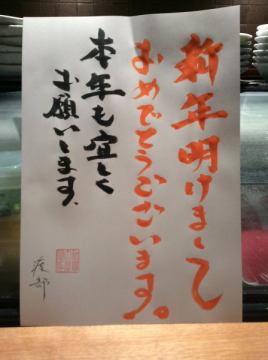 新年明けまして
おめでとうございます。
本年も宜しく
お願いします。